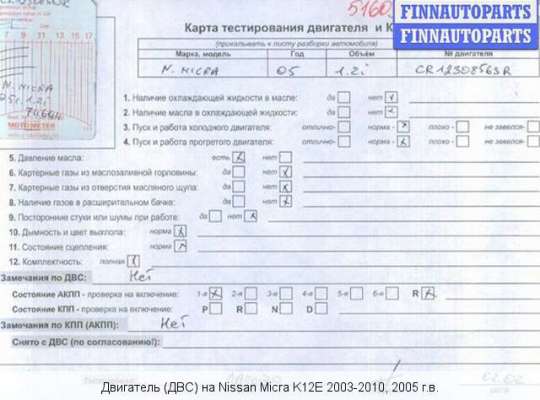 5160
FINNAUTOPARTS
FINNAUTOPARTS
Карта тестирования двигателя и К
(прикалывать к листу разборки автомобиля)
Марка, модель Год Объём № двигателя
N. MICRA 05 1.2i CR12308563R
7 9 11 13 15 17
N. Micra
05г. 1.2i
74664
MOTOMETER
1. Наличие охлаждающей жидкости в масле: да нет x
2. Наличие масла в охлаждающей жидкости: да нет x
3. Пуск и работа холодного двигателя: отлично- норма - x плохо - не завелся-
4. Пуск и работа прогретого двигателя: отлично- норма - x плохо - не завелся-
5. Давление масла: есть x нет
6. Картерные газы из маслозаливной горловины: да нет x
7. Картерные газы из отверстия масляного щупа: да нет x
8. Наличие газов в расширительном бачке: да нет x
9. Посторонние стуки или шумы при работе: да нет x
10. Дымность и цвет выхлопа: норма x
11. Состояние сцепления: норма x
12. Комплектность: полная x
Замечания по ДВС: Нет
Состояние АКПП - проверка на включение: 1-я x 2-я 3-я 4-я 5-я 6-я R x
Состояние КПП - проверка на включение: P R N D
Замечания по КПП (АКПП): Нет
Снято с ДВС (по согласованию!):
Двигатель (ДВС) на Nissan Micra K12E 2003-2010, 2005 г.в.